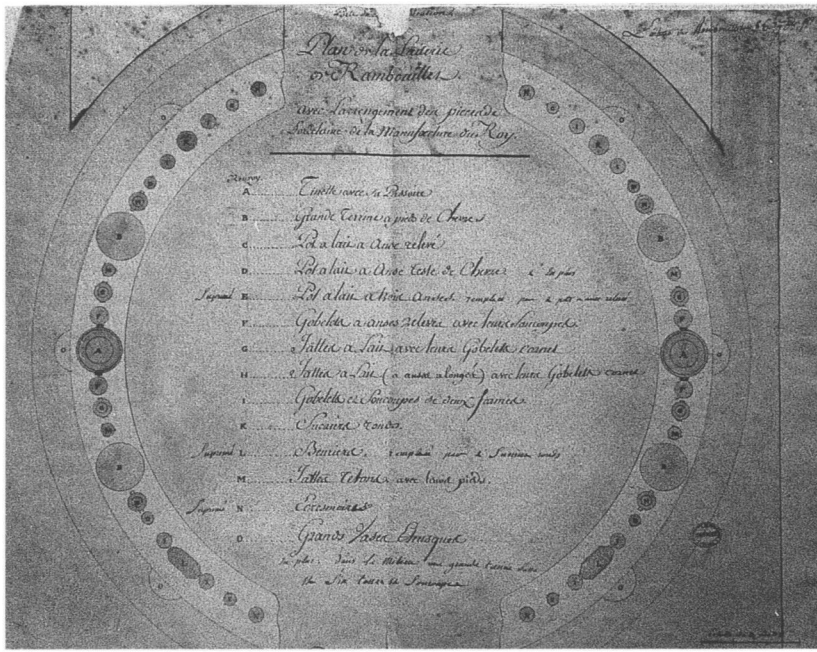 Plan de la Laiterie
de Rambouillet.
avec l'arrengement des pieces de
Porcelaine de la Manufacture du Roy.
A Tinette avec sa Passoire
B Grande Terrine a pieds de Chevres
C Pot a lait a Anse relevé
D Pot a lait a Anse Teste de Chevre
Suprimé E Pot a lait a trois Anses remplacé par le pot a anse relevé
F Gobelets a anses relevés avec leurs Soucoupes
G Jattes a Lait avec leurs Gobelets cornet
H Jattes a Lait (a anses alonges) avec leurs Gobelets cornets
I Gobelets et Soucoupes de deux formes
K Sucriers ronds
Suprimé L Beurriers. remplacé par le Sucrier ronds
M Jattes Tetons avec leurs pieds.
Suprimé N Ecremoires
O Grands Vases Etrusques
en plus. dans le Milieu une grande
Six Tasses et Soucoupes